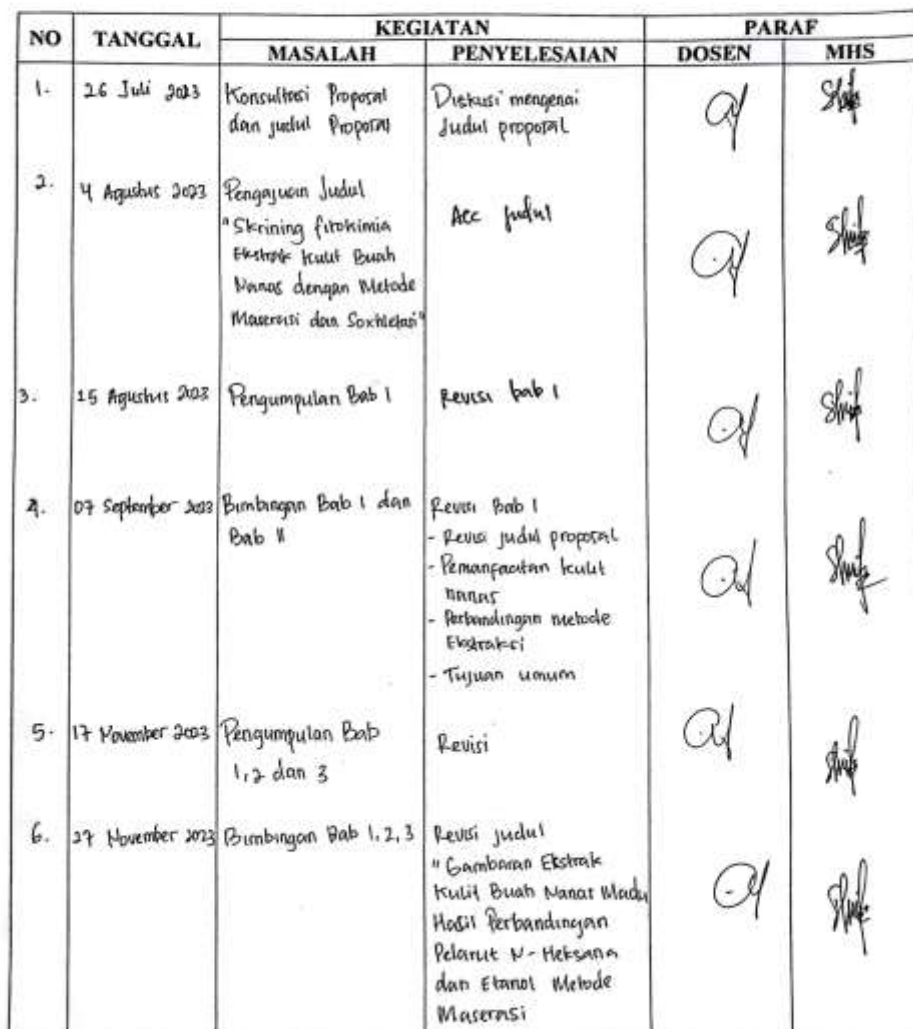 NO TANGGAL KEGIATAN PARAF
MASALAH PENYELESAIAN DOSEN MHS
1. 26 Juli 2023 Konsultasi Proposal Diskusi mengenai
dan judul Proposal Judul proposal
2. 4 Agustus 2023 Pengajuan Judul Acc judul
"Skrining fitokimia
Ekstrak kulit Buah
Nanas dengan Metode
Maserasi dan Soxhletasi"
3. 15 Agustus 2023 Pengumpulan Bab 1 Revisi bab 1
4. 07 September 2023 Bimbingan Bab I dan Revisi Bab I
Bab II - Revisi judul proposal
- Pemanfaatan kulit
nanas
- Perbandingan metode
Ekstraksi
- Tujuan umum
5. 17 November 2023 Pengumpulan Bab Revisi
1,2 dan 3
6. 27 November 2023 Bimbingan Bab 1,2,3 Revisi judul
"Gambaran Ekstrak
Kulit Buah Nanas Madu
Hasil Perbandingan
Pelarut N-Heksana
dan Etanol Metode
Maserasi